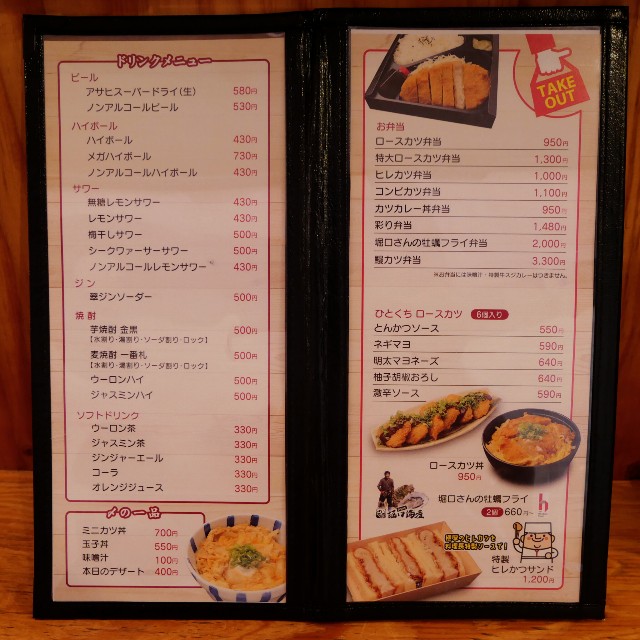 ドリンクメニュー
ビール
アサヒスーパードライ(生) 580円
ノンアルコールビール 530円
ハイボール
ハイボール 430円
メガハイボール 730円
ノンアルコールハイボール 430円
サワー
無糖レモンサワー 430円
レモンサワー 430円
梅干しサワー 500円
シークヮーサーサワー 500円
ノンアルコールレモンサワー 430円
ジン
翠ジンソーダー 500円
焼酎
芋焼酎 金黒 500円
【水割り・湯割り・ソーダ割り・ロック】
麦焼酎 一番札 500円
【水割り・湯割り・ソーダ割り・ロック】
ウーロンハイ 500円
ジャスミンハイ 500円
ソフトドリンク
ウーロン茶 330円
ジャスミン茶 330円
ジンジャーエール 330円
コーラ 330円
オレンジジュース 330円
〆の一品
ミニカツ丼 700円
玉子丼 550円
味噌汁 100円
本日のデザート 400円
TAKE
OUT
お弁当
ロースカツ弁当 950円
特大ロースカツ弁当 1,300円
ヒレカツ弁当 1,000円
コンビカツ弁当 1,100円
カツカレー丼弁当 950円
彩り弁当 1,480円
堀口さんの牡蠣フライ弁当 2,000円
鰻カツ弁当 3,300円
※お弁当には味噌汁・特製牛スジカレーはつきません。
ひとくち ロースカツ 6個入り
とんかつソース 550円
ネギマヨ 590円
明太マヨネーズ 640円
柚子胡椒おろし 640円
激辛ソース 590円
ロースカツ丼
950円
堀口さんの牡蠣フライ
2個 660円〜
特製
ヒレかつサンド
1,200円